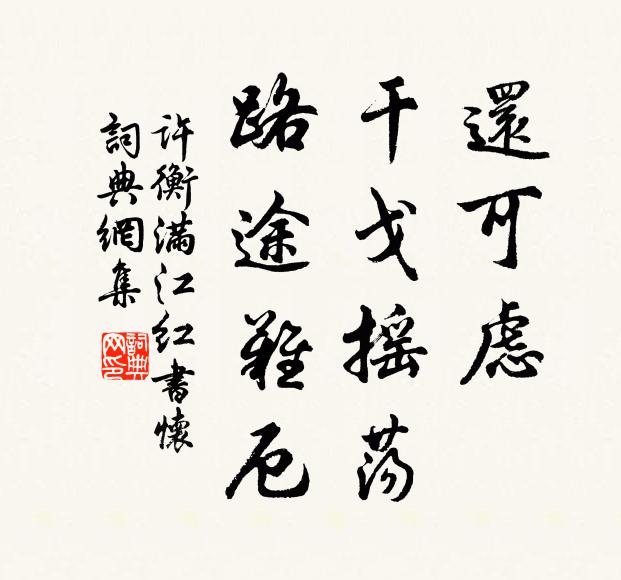 還可慮
干戈摇荡
路途難厄
许衡滿江红書懷
詞典網集
詞典
网印